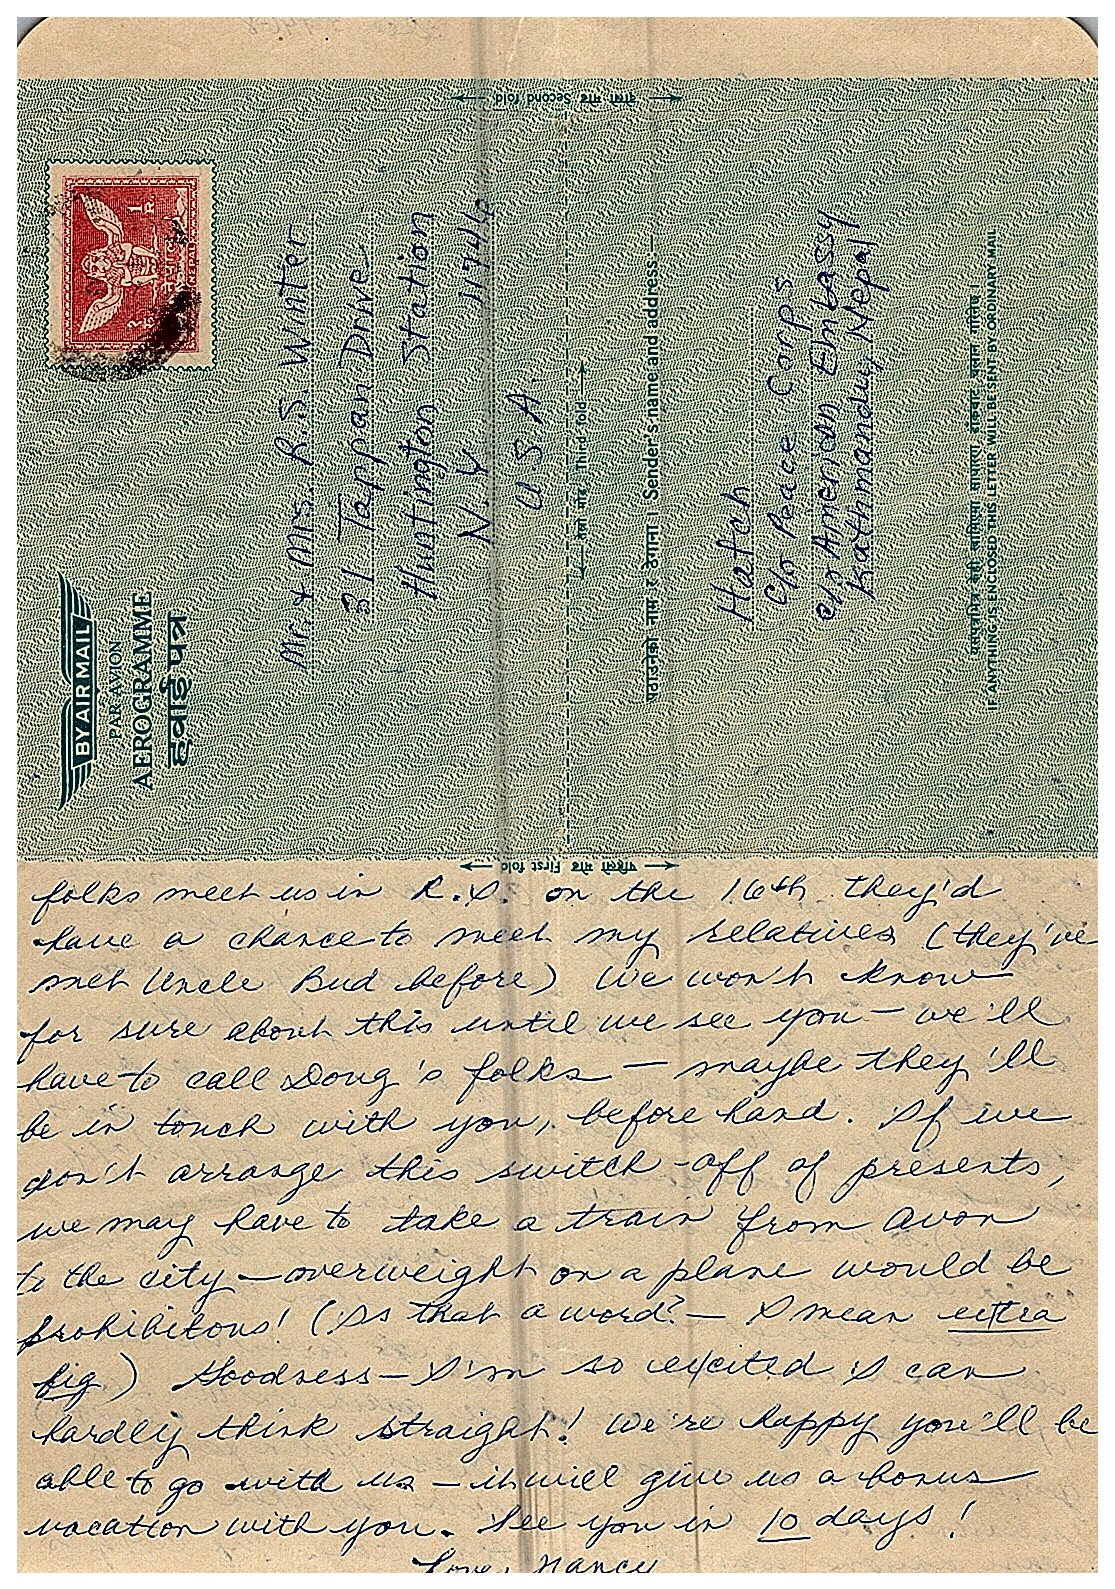 दोस्रो मोड Second fold
१ रु. 1 R.
नेपाल
NEPAL
BY AIR MAIL
PAR AVION
AEROGRAMME
हवाई पत्र
Mr. & Mrs. R.S. Winter
31 Tappan Drive
Huntington Station
N.Y. 11746
U.S.A.
तेस्रो मोड Third fold
पठाउनेको नाम र ठेगाना । Sender's name and address
Hatch
c/o Peace Corps
c/o American Embassy
Kathmandu, Nepal
यसपत्रभित्र केही
IF ANYTHING IS ENCLOSED THIS LETTER WILL BE SENT BY ORDINARY MAIL
पहिलो मोड First fold
folks meet us in R.I. on the 16th they'd
have a chance to meet my relatives (they've
met Uncle Bud before) We won't know
for sure about this until we see you – we'll
have to call Doug's folks – maybe they'll
be in touch with you, before hand. If we
don't arrange this switch-off of presents,
we may have to take a train from Avon
to the city – overweight on a plane would be
prohibitous! (Is that a word? – I mean extra
big) Goodness – I'm so excited I can
hardly think straight! We're happy you'll be
able to go with us – it will give us a bonus
vacation with you. See you in 10 days!
Love, Nancy